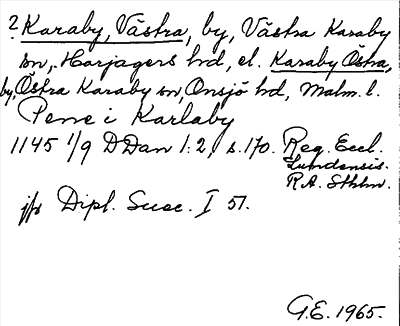 ? Karaby, Västra, by, Västra Karaby
sn, Harjagers hd, el. Karaby Östra,
by, Östra Karaby sn, Onsjö hd, Malm. l.
Pene i Karlaby
1145 1/9 DDan 1:2, s. 170. Reg. Eccl.
Lundensis.
R.A. Sthlm.
jfr Dipl. Suec. I 57.
G.E. 1965.